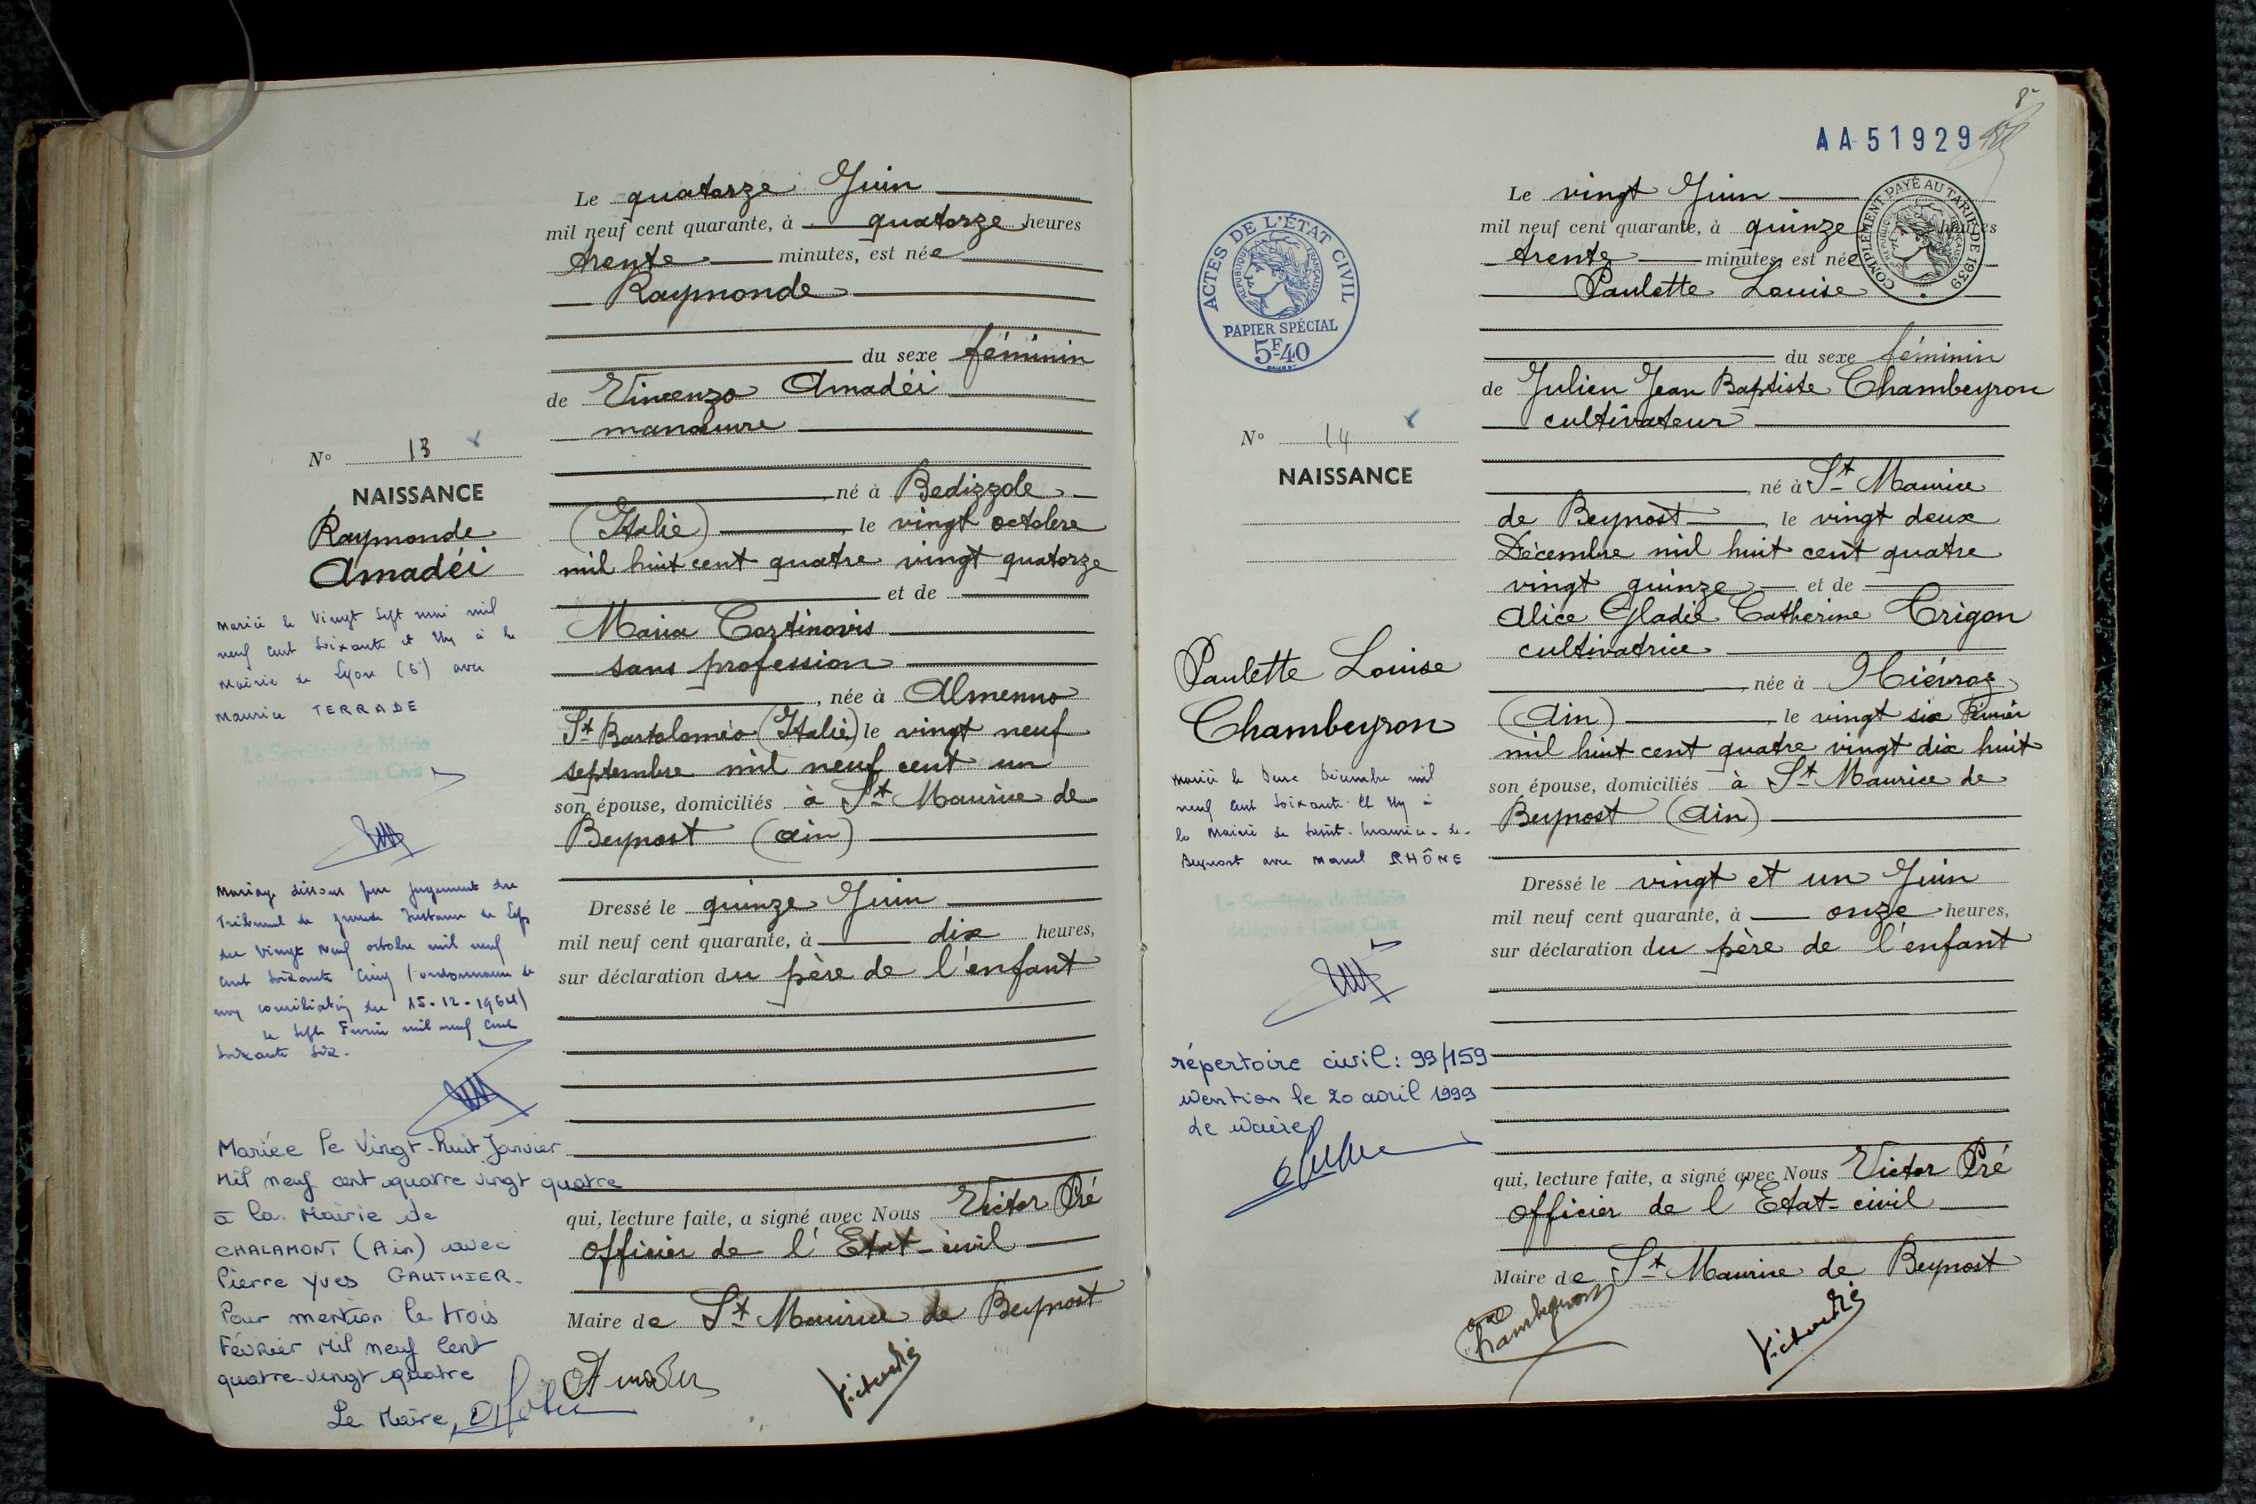 Le quatorze Juin
mil neuf cent quarante, à quatorze heures
trente minutes, est née
Raymonde
du sexe féminin
de Vincenzo Amadéi
manœuvre
né à Bedizzole
(Italie), le vingt octobre
mil huit cent quatre vingt quatorze
et de
Maria Cortinovis
sans profession
, née à Almenno
St Bartoloméo (Italie) le vingt neuf
septembre mil neuf cent un
son épouse, domiciliés à St Maurice de
Beynost (Ain)
Dressé le quinze Juin
mil neuf cent quarante, à dix heures,
sur déclaration du père de l'enfant
qui, lecture faite, a signé avec Nous Victor Pré
officier de l'Etat-civil
Maire de St Maurice de Beynost
N° 13
NAISSANCE
Raymonde
Amadéi
Mariée le Vingt Sept mai mil
neuf cent soixante et Un à la
Mairie de Lyon (6) avec
Maurice TERRADE
Le Secrétaire de Mairie
délégué à l'État Civil
Mariage dissous par jugement du
Tribunal de grande Instance de Lyon
du Vingt Neuf octobre mil neuf
cent soixante Cinq (ordonnance de
non conciliation du 15-12-1964)
le sept Février mil neuf cent
soixante six.
Mariée le Vingt-huit Janvier
Mil neuf cent quatre vingt quatre
à la Mairie de
CHALAMONT (Ain) avec
Pierre Yves GAUTHIER.
Pour mention le trois
Février Mil neuf Cent
quatre-vingt quatre
Le Maire,
8
AA 51929
ACTES DE L'ÉTAT CIVIL
RÉPUBLIQUE FRANÇAISE
PAPIER SPÉCIAL
5F40
COMPLÉMENT PAYÉ AU TARIF DE 1939
Le vingt Juin
mil neuf cent quarante, à quinze heures
trente minutes, est née
Paulette Louise
du sexe féminin
de Julien Jean Baptiste Chambeyron
cultivateur
, né à St Maurice
de Beynost, le vingt deux
Décembre mil huit cent quatre
vingt quinze et de
Alice Gladie Catherine Trigon
cultivatrice
, née à Niévroz
(Ain), le vingt six Février
mil huit cent quatre vingt dix huit
son épouse, domiciliés à St Maurice de
Beynost (Ain)
Dressé le vingt et un Juin
mil neuf cent quarante, à onze heures,
sur déclaration du père de l'enfant
qui, lecture faite, a signé avec Nous Victor Pré
officier de l'Etat-civil
Maire de St Maurice de Beynost
Chambeyron
Victor Pré
N° 14
NAISSANCE
Paulette Louise
Chambeyron
Mariée le Deux Décembre mil
neuf cent soixante et Un à
la Mairie de Saint-Maurice-de-
Beynost avec Marcel RHÔNE
Le Secrétaire de Mairie
délégué à l'État Civil
répertoire civil: 99/159
mention le 20 avril 1999
le maire